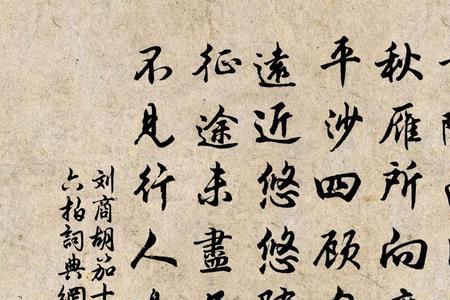 秋雁所向
平沙四顧
遠近悠悠
征途未盡
不見行人
刘商胡笳十
六拍詞典網